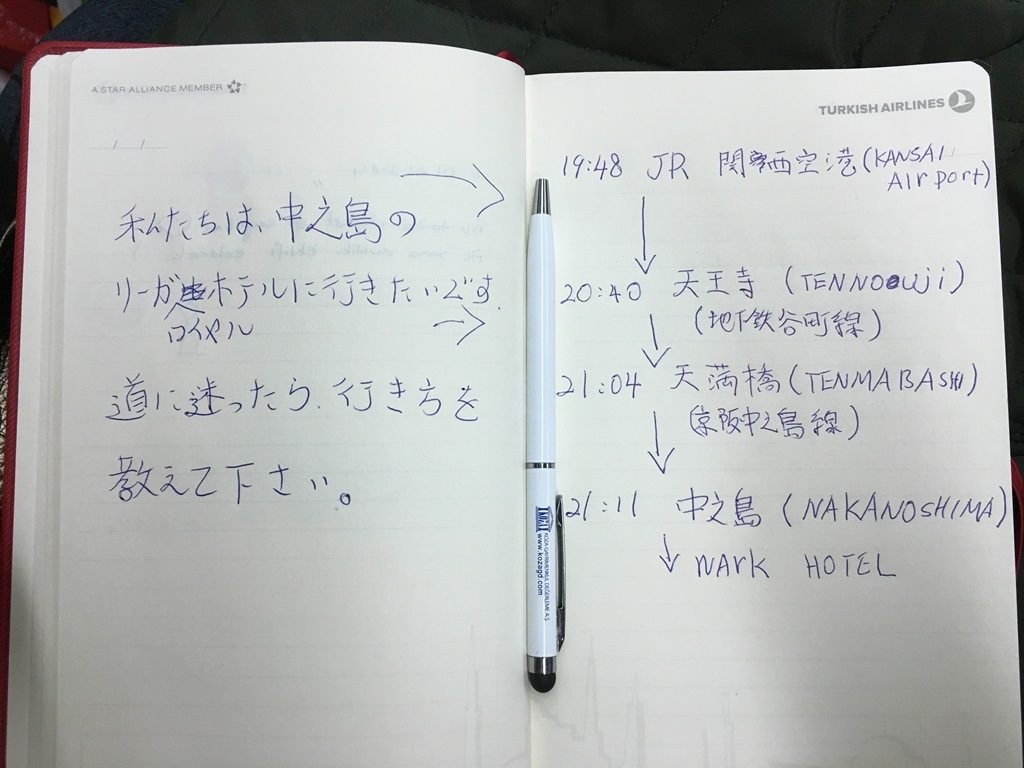 A STAR ALLIANCE MEMBER
私たちは、中之島の
リーガホテルに行きたいです。
ロイヤル
道に迷ったら、行き方を
教えて下さい。
TURKISH AIRLINES
19:48 JR 関西空港(KANSAI
Airport)
20:40 天王寺 (TENNOUji)
(地下鉄谷町線)
21:04 天満橋(TENMABASHI)
(京阪中之島線)
21:11 中之島 (NAKANOSHIMA)
WArK HOTEL
KOZA GAYRİMENKUL DEĞERLEME A.Ş.
www.kozagd.com